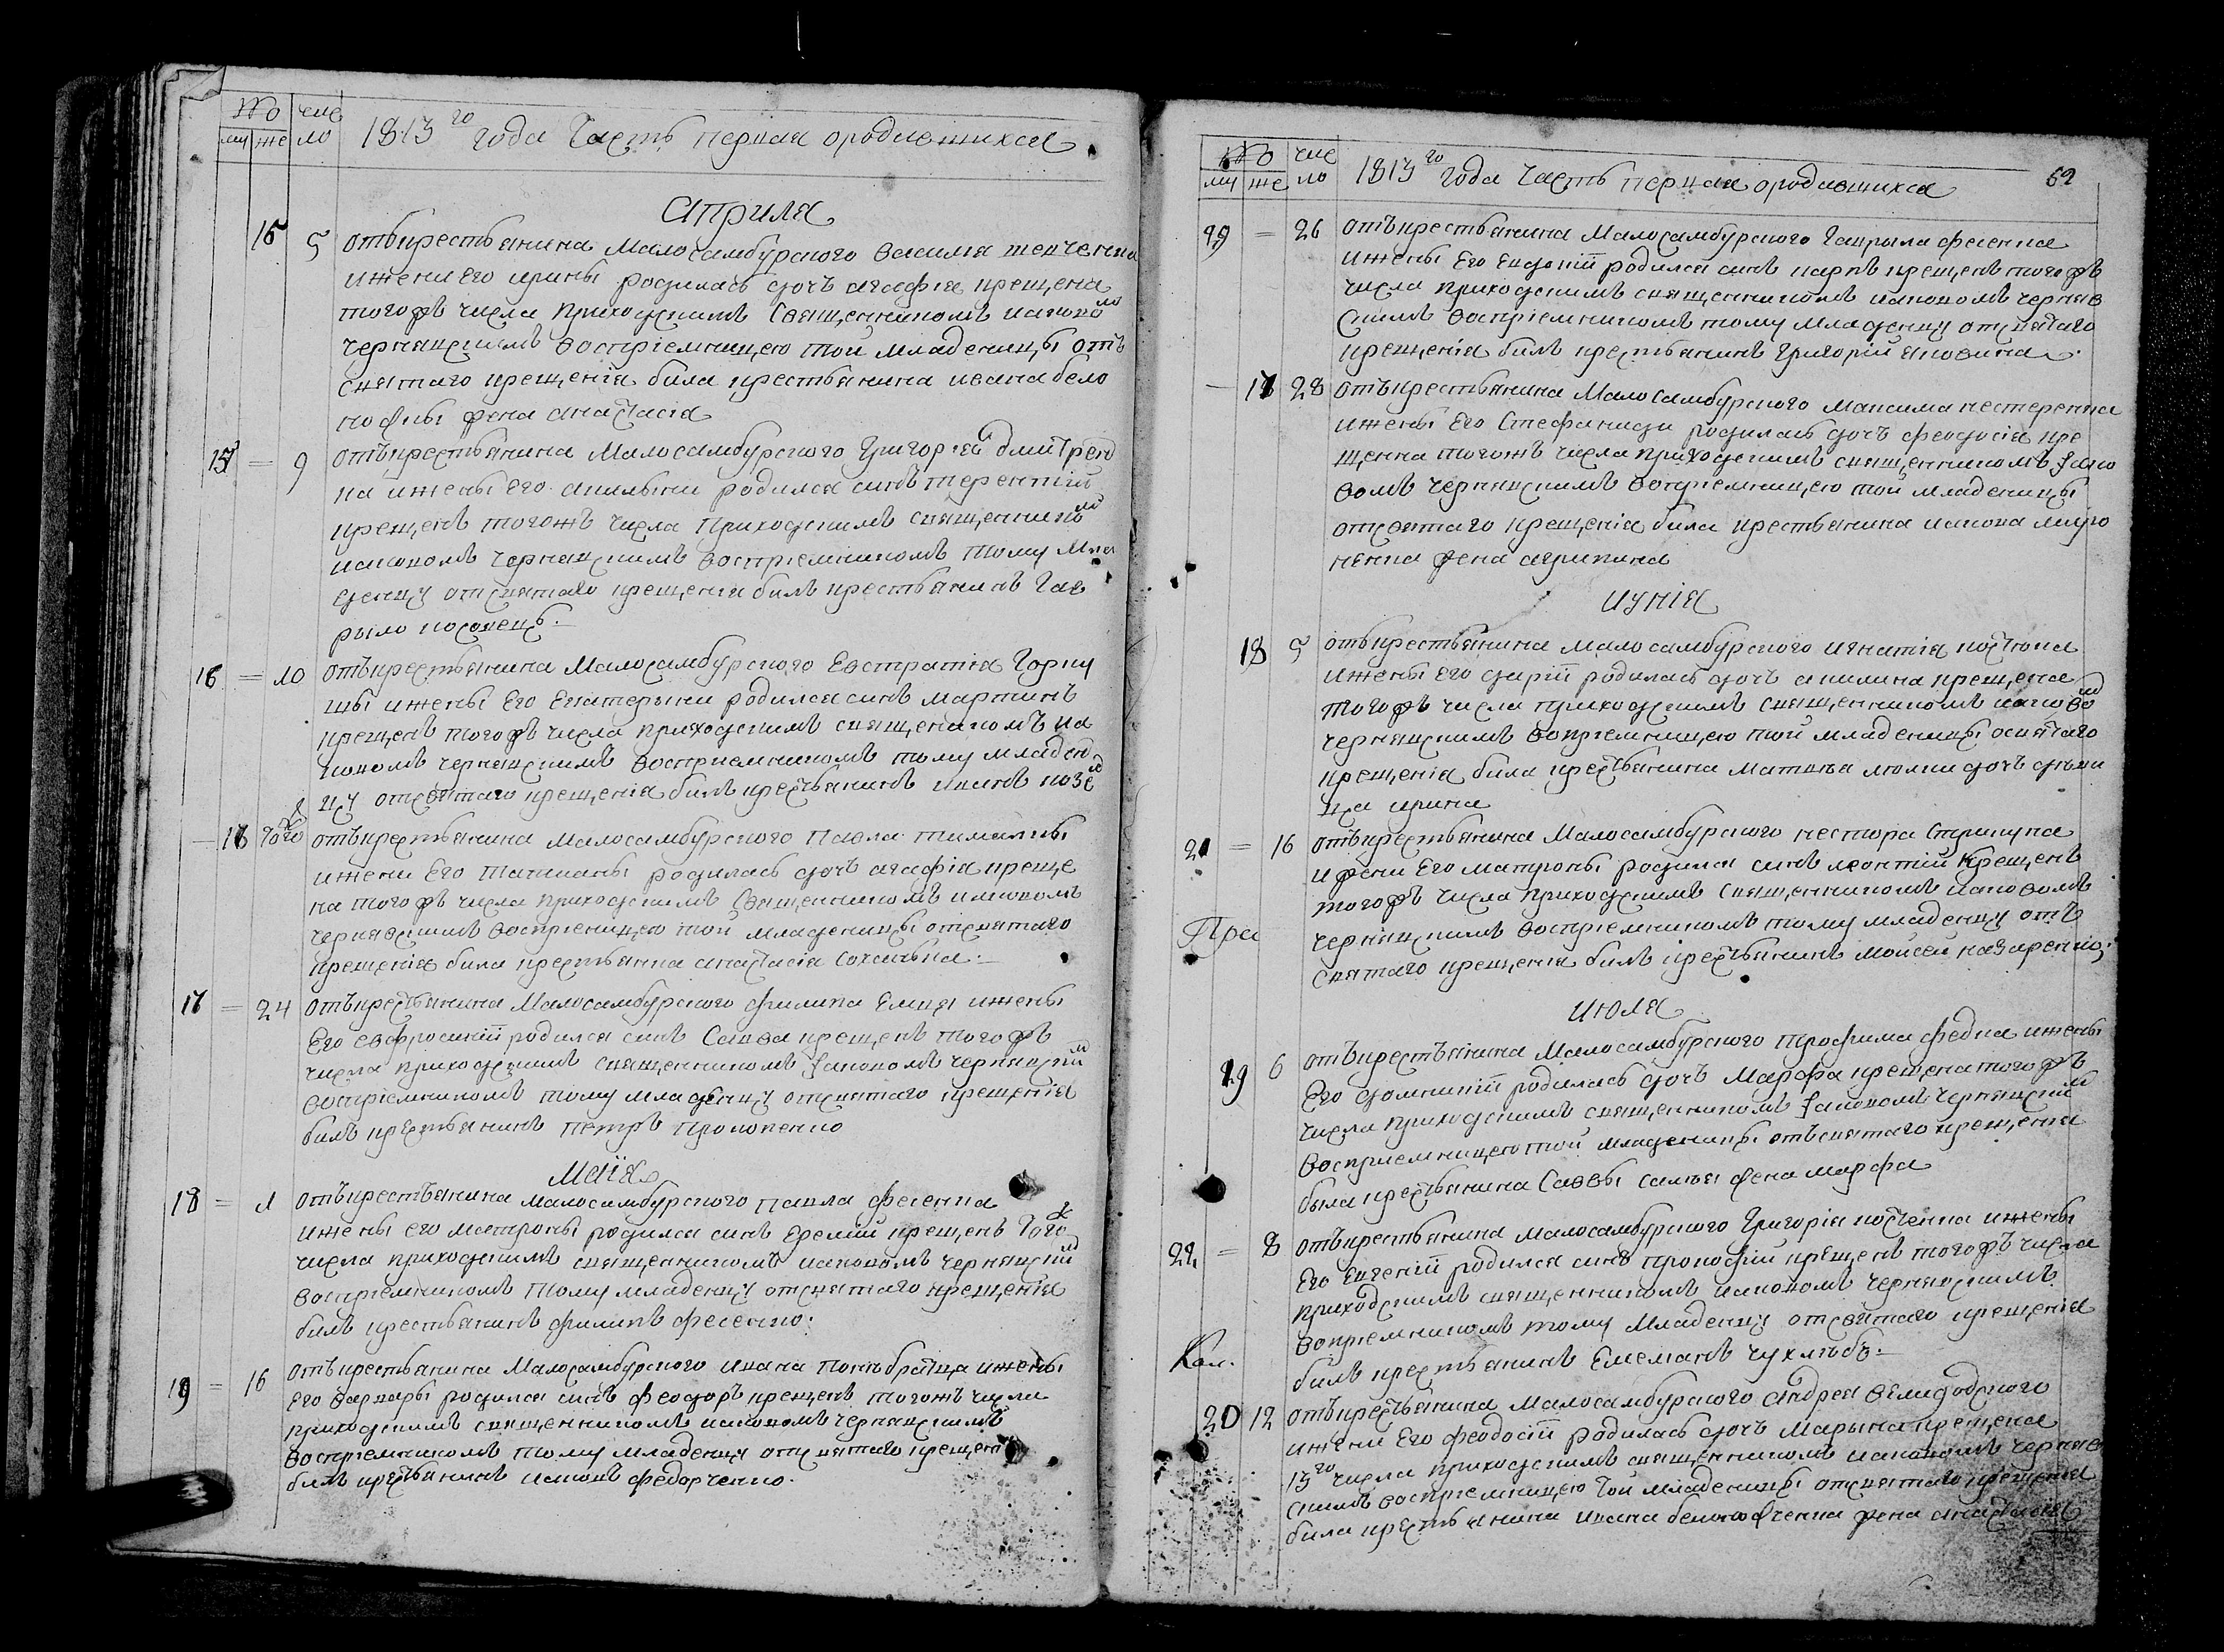 № числo
му же
1813го года Часть первая ородившихся
Априля
15 5 отъкрестьянина Малосамбурского василия шевченка
ижени Его ирины родилась дочъ агафія крещена
тогожъ числа приходскимъ Священникомъ иаковомъ
чернявскимъ воспріемницею той младеницы отъ
святаго крещенія била крестьянина ивана бело
ножки жена анастасія
15 = 9 отъкрестьянина Малосамбурского Григорієй дмитрен
ка ижены Его акилыни родился синъ терентій
крещенъ тогожъ числа Приходскимъ священникомъ
иаковомъ чернявскимъ воспріемникомъ тому мла
денцу отсвятаго крещенія билъ крестьянинъ Гав
рыло косовецъ.
16 = 10 отъкрестьянина Малосамбурского Евстратія Горку
шы ижены Его Екатерыни родился синъ мартинъ
крещенъ тогожъ числа приходскимъ священикомъ иа
ковомъ чернявскимъ восприемникомъ тому младен
цу отсвятаго крещенія билъ крестьянинъ иванъ
16 Того отъкрестьянина Малосамбурского Павла
ижени Его Татианы родилась дочъ агафія креще
на тогожъ числа приходскимъ Священникомъ иаковомъ
чернявскимъ воспріемницею той младеницы отсвятаго
крещенія била крестьянка анастасія
17 = 24 отъкрестьянина Малосамбурского филипа Емця ижены
Его евфросиній родился синъ Савва крещенъ тогожъ
числа приходскимъ священникомъ Іаковомъ чернявскимъ
воспріемникомъ тому младенцу отсвятаго крещенія
билъ крестьянинъ Петръ Прокопенко
Маія
18 = 1 отъкрестьянина Малосамбурского павла фесенка
ижены его матроны родился синъ Еремій крещенъ Тогож
числа приходскимъ священникомъ иаковомъ чернявскимъ
воспріемникомъ Тому младенцу отсвятаго крещенія
билъ крестьянинъ филипъ фесенко.
19 = 16 отъкрестьянина Малосамбурского ивана
его варвары родился синъ феодоръ крещенъ тогожъ числа
приходскимъ священникомъ иаковомъ чернявскимъ
воспріемникомъ тому младенцу отсвятаго крещенія
билъ крестьянинъ иаковъ федорченко.
№ число
му же
1813го года Часть первая ородившихся 62
= 26 отъкрестьянина Малосамбурского Гаврыла фесенка
ижены Его Евдокій родился синъ карпъ крещенъ тогожъ
числа приходскимъ священникомъ иаковомъ черняв
скимъ воспріемникомъ тому младенцу отсвятаго
крещенія билъ крестьянинъ григорій яковина.
17 28 отъкрестьянина Малосамбурского Максима нестеренка
ижены Его Стефаниди родилась дочъ феодосія кре
щенна тогожъ числа приходскимъ священникомъ Іако
вомъ чернявскимъ вопріемницею той младеницы
отсвятаго крещенія била крестьянина иакова миро
ненка жена агрипина
Иунія
18 5 отъкрестьянина малосамбурского игнатія костюка
ижены его дарій родилась дочъ акилина крещена
тогожъ числа приходскимъ священникомъ иаковом
чернявскимъ вопріемницею той младеницы освятаго
крещенія била крестьянина Матвъя дочъ дъви
ца ирина
21 = 16 отъкрестьянина Малосамбурского нестора Стрикупа
ижени Его матроны родился синъ леонтій крещенъ
тогожъ числа приходскимъ священникомъ иаковомъ
Пра
чернявскимъ воспріемникомъ тому младенцу отъ
святаго крещенія билъ крестьянинъ Мойсей назаренко;
Июля
19 6 отъкрестьянина Малосамбурского трофима федка ижены
Его домникій родилась дочъ Марфа крещена тогожъ
числа приходскимъ священникомъ Іаковомъ чернявским
воспріемницею той младеницы отъсвятаго крещенія
была крестьянина Саввы жена марфа
22 = 8 отъкрестьянина малосамбурского Григорія костенка ижены
Его Евгеній родился синъ прокофій крещенъ тогожъ числа
приходскимъ священникомъ иаковомъ чернявскимъ
вопріемникомъ тому младенцу отсвятаго крещенія
Кал.
билъ крестьянинъ Емелианъ чухлъбъ.
20 12 отъкрестьянина Малосамбурского андрея
ижени Его феодосій родилась дочъ Марына крещена
13го числа приходскимъ священникомъ иаковомъ черняв
скимъ воспріемницею той младеницы отсвятаго крещенія
била крестьянина ивана жена анастасія